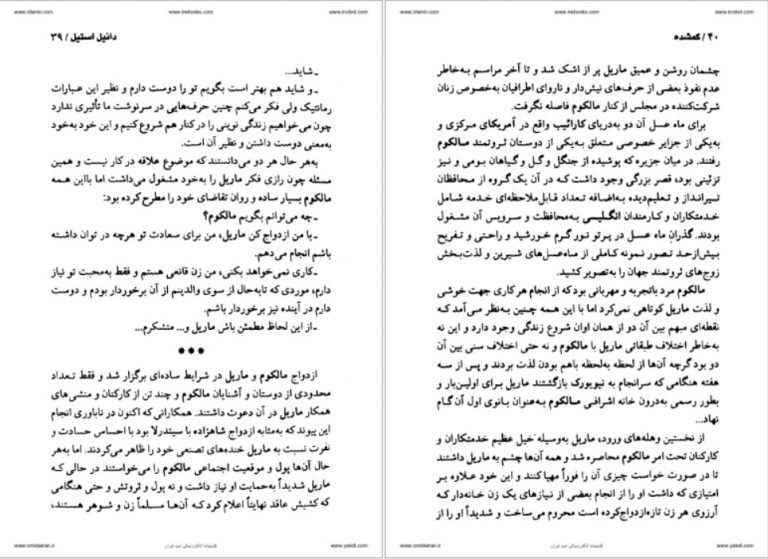 www.irtanin.com www.irebooks.com www.ircdvd.com
دانیل استیل / ۳۹
ـ شاید...
ـ و شاید هم بهتر است بگویم تو را دوست دارم و نظیر این عبارات
رمانتیک ولی فکر می‌کنم چنین حرف‌هایی در سرنوشت ما تأثیری ندارد
چون می‌خواهیم زندگی نوینی را در کنار هم شروع کنیم و این خود به‌خود
به‌معنی دوست داشتن و نظیر آن است.
به‌هر حال هر دو می‌دانستند که موضوع علاقه در کار نیست و همین
مسئله چون رازی فکر ماریل را به‌خود مشغول می‌داشت اما بااین همه
مالکوم بسیار ساده و روان تقاضای خود را مطرح کرده بود:
ـ چه می‌توانم بگویم مالکوم؟
ـ با من ازدواج کن ماریل، من برای سعادت تو هرچه در توان داشته
باشم انجام می‌دهم.
ـ کاری نمی‌خواهد بکنی، من زن قانعی هستم و فقط به‌محبت تو نیاز
دارم، موردی که تابه‌حال از سوی والدینم از آن برخوردار بودم و دوست
دارم در آینده نیز برخوردار باشم.
ـ از این لحاظ مطمئن باش ماریل و... متشکرم...
***
ازدواج مالکوم و ماریل در شرایط ساده‌ای برگزار شد و فقط تعداد
محدودی از دوستان و آشنایان مالکوم و چند تن از کارکنان و منشی‌های
همکار ماریل در آن دعوت داشتند. همکارانی که اکنون در ناباوری انجام
این پیوند که به‌مثابه ازدواج شاهزاده با سیندرلا بود با احساس حسادت و
نفرت نسبت به ماریل خنده‌های تصنعی خود را ظاهر می‌کردند. اما به‌هر
حال آن‌ها پول و موقعیت اجتماعی مالکوم را می‌خواستند در حالی که
ماریل شدیداً به‌حمایت او نیاز داشت و نه پول و ثروتش و حتی هنگامی
که کشیش عاقد نهایتاً اعلام کرد که آن‌ها مسلماً زن و شوهر هستند،
www.omideiran.ir کتابخانه الکترونیکی امید ایران www.yekdl.com
www.irtanin.com www.irebooks.com www.ircdvd.com
۴۰ / گمشده
چشمان روشن و عمیق ماریل پر از اشک شد و تا آخر مراسم به‌خاطر
عدم نفوذ بعضی از حرف‌های نیش‌دار و ناروای اطرافیان به‌خصوص زنان
شرکت‌کننده در مجلس از کنار مالکوم فاصله نگرفت.
برای ماه عسل آن دو به‌دریای کارائیب واقع در آمریکای مرکزی و
به‌یکی از جزایر خصوصی متعلق به‌یکی از دوستان ثروتمند مالکوم
رفتند. در میان جزیره که پوشیده از جنگل و گل و گیاهان بومی و نیز
تزئینی بود، قصر بزرگی وجود داشت که در آن یک گروه از محافظان
تیرانداز و تعلیم‌دیده به‌اضافه تعداد قابل‌ملاحظه‌ای خدمه شامل
خدمتکاران و کارمندان انگلیسی به‌محافظت و سرویس آن مشغول
بودند. گذران ماه عسل در پرتو نور گرم خورشید و راحتی و تفریح
بیش‌ازحد تصور نمونه کاملی از ماه‌عسل‌های شیرین و لذت‌بخش
زوج‌های ثروتمند جهان را به‌تصویر کشید.
مالکوم مرد باتجربه و مهربانی بود که از انجام هر کاری جهت خوشی
و لذت ماریل کوتاهی نمی‌کرد اما با این همه چنین به‌نظر می‌آمد که
نقطه‌ای مبهم بین آن دو از همان اوان شروع زندگی وجود دارد و این نه
به‌خاطر اختلاف طبقاتی ماریل با مالکوم و نه حتی اختلاف سنی بین آن
دو بود گرچه آن‌ها از لحظه به‌لحظه باهم بودن لذت بردند و پس از سه
هفته هنگامی که سرانجام به نیویورک بازگشتند ماریل برای اولین‌بار و
بطور رسمی به‌درون خانه اشرافی مالکوم به‌عنوان بانوی اول آن گام
نهاد...
از نخستین وهله‌های ورود، ماریل به‌وسیله خیل عظیم خدمتکاران و
کارکنان تحت امر مالکوم محاصره شد و همه آن‌ها چشم به ماریل داشتند
تا در صورت خواست چیزی آن را فوراً مهیا کنند و این خود علاوه بر
امتیازی که داشت او را از انجام بعضی از نیازهای یک زن خانه‌دار که
آرزوی هر زن تازه‌ازدواج‌کرده است محروم می‌ساخت و شدیداً او را از
www.omideiran.ir کتابخانه الکترونیکی امید ایران www.yekdl.com